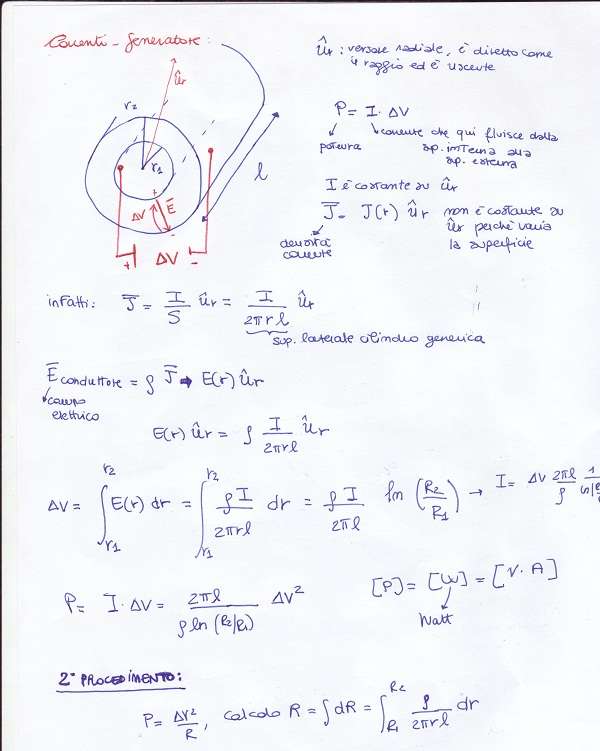 Correnti - generatore:
ûr : versore radiale, è diretto come
il raggio ed è uscente
ûr
r2
r1
l
ΔV
E̅
+
-
+ ΔV -
P = I · ΔV
potenza
corrente che qui fluisce dalla
sup. interna alla
sup. esterna
I è costante su ûr
J̅ = J(r) ûr non è costante su
ûr perchè varia
la superficie
densità
corrente
infatti: J̅ = I/S ûr = I/2πrl ûr
sup. laterale cilindro generica
E̅ conduttore = ρ J̅ → E(r) ûr
campo
elettrico
E(r) ûr = ρ I/2πrl ûr
ΔV = ∫_{r1}^{r2} E(r) dr = ∫_{r1}^{r2} ρI/2πrl dr = ρI/2πl ln (R2/R1) → I = ΔV 2πl/ρ 1/
P = I · ΔV = 2πl/ρ ln (R2/R1) ΔV²
[P] = [W] = [V · A]
Watt
2° PROCEDIMENTO:
P = ΔV²/R , calcolo R = ∫dR = ∫_{R1}^{R2} ρ/2πrl dr